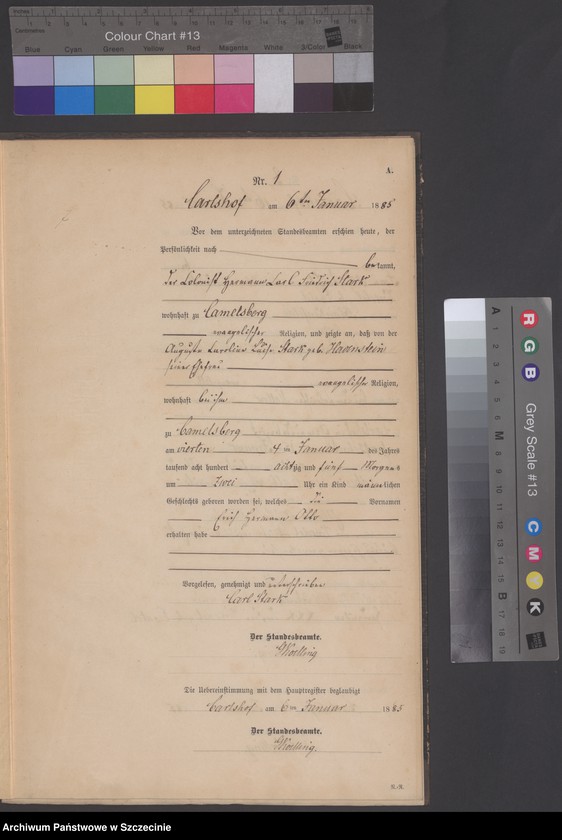 Colour Chart #13
Blue Cyan Green Yellow Red Magenta White 3/Color Black
A.
Nr. 1
Carlshof am 6ten Januar 1885
Vor dem unterzeichneten Standesbeamten erschien heute, der
Persönlichkeit nach
bekannt,
der Colonist Hermann Carl Friedrich Stark
wohnhaft zu Camelsberg
evangelischer Religion, und zeigte an, daß von der
Auguste Caroline Luise Stark geb.
seiner Ehefrau
evangelischer Religion,
wohnhaft bei ihm
zu Camelsberg
am vierten 4ten Januar des Jahres
tausend acht hundert achtzig und fünf Morgens
um zwei Uhr ein Kind männlichen
Geschlechts geboren worden sei, welches die Vornamen
Erich Hermann Otto
erhalten habe
Vorgelesen, genehmigt und unterschrieben
Carl Stark
Der Standesbeamte.
Die Uebereinstimmung mit dem Hauptregister beglaubigt
Carlshof am 6ten Januar 1885
Der Standesbeamte.
R.-R.
A
R
G
B
M
Grey Scale #13
C
M
Y
K
B
Archiwum Państwowe w Szczecinie